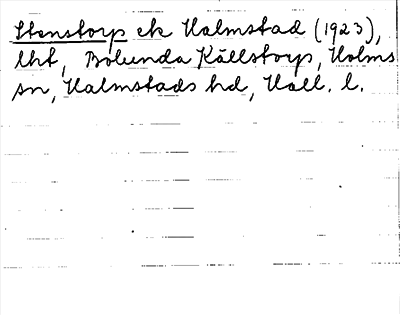 Stenstorp ek Halmstad (1923),
lht, Bolunda Källstorp, Holms
sn, Halmstads hd, Hall. l.